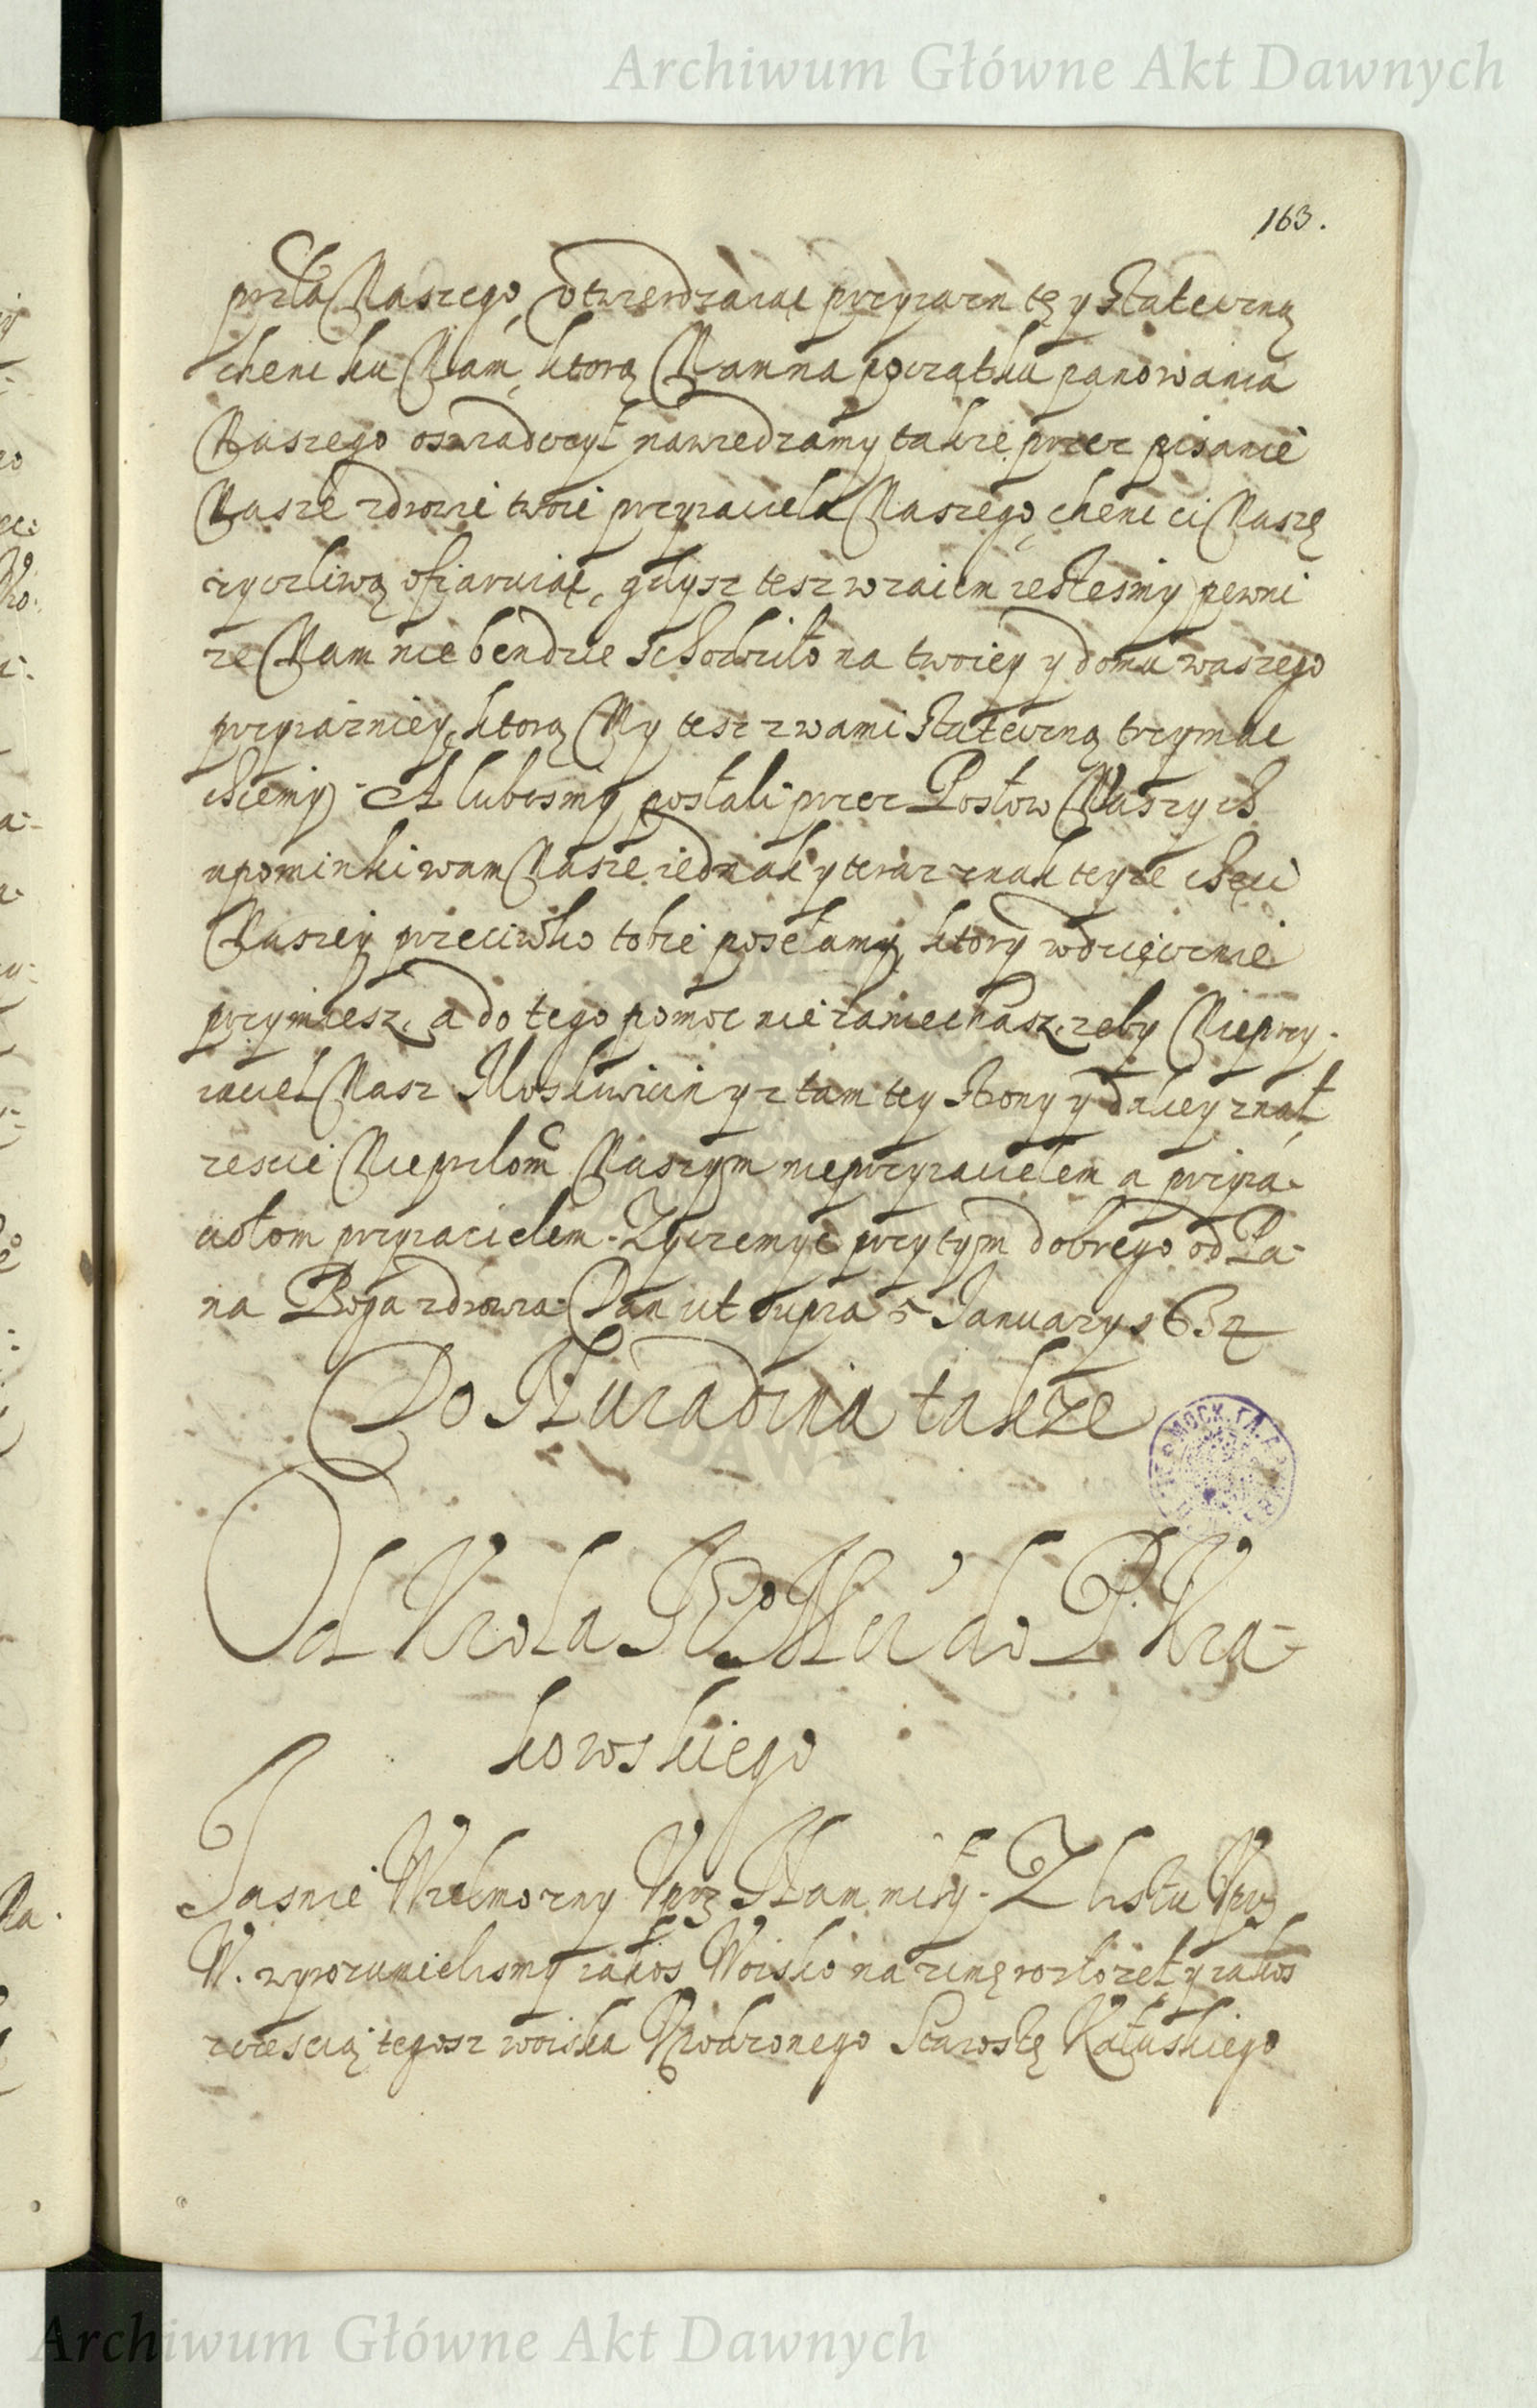 Archiwum Główne Akt Dawnych
163.
przla Naszego, otwierdzaiąc przyiazn tę y stateczną
chenc ku Nam, ktorą Nam na początku panowania
Naszego oswiadczył nawiedzamy także przez pisanie
Nasze zdrowie twoie przyiaciela Naszego, chenc ci Naszę
zyczliwą ofiaruiąc, gdysz tesz wzaiem iestesmy pewni
ze Nam nie bendzie schodziło na twoiey y domu waszego
przyiazniey, ktorą My tesz z wami stateczną trzymac
chcemy. A lubosmy posłali przez Posłow Naszych
upominki wam Nasze iednak y teraz znak teyze chęci
Naszey przeciwko tobie posełamy, ktory wdzięcznie
przymiesz, a do tego pomoc nie zaniechasz, zeby Nieprzy-
iaciel Nasz Moskwicin y z tamtey strony y daley znał
zescie Nieprzlom Naszym nieprzyiacielem a przyia-
ciołom przyiacielem. Zyczemyć przytym dobrego od Pa-
na Boga zdrowia. Dan ut supra 5 January 1632
Do Nuradina takze
Od Krola Je° Mci do P. Kra-
kowskiego
Jasnie Wielmozny Uprz. Nam miły. Z listu Uprz.
W. wyrozumielismy iakos Woisko na zimę rozłozeł y iakos
z częscią tegosz woiska Urodzonego Starostę Kałuskiego
Archiwum Główne Akt Dawnych